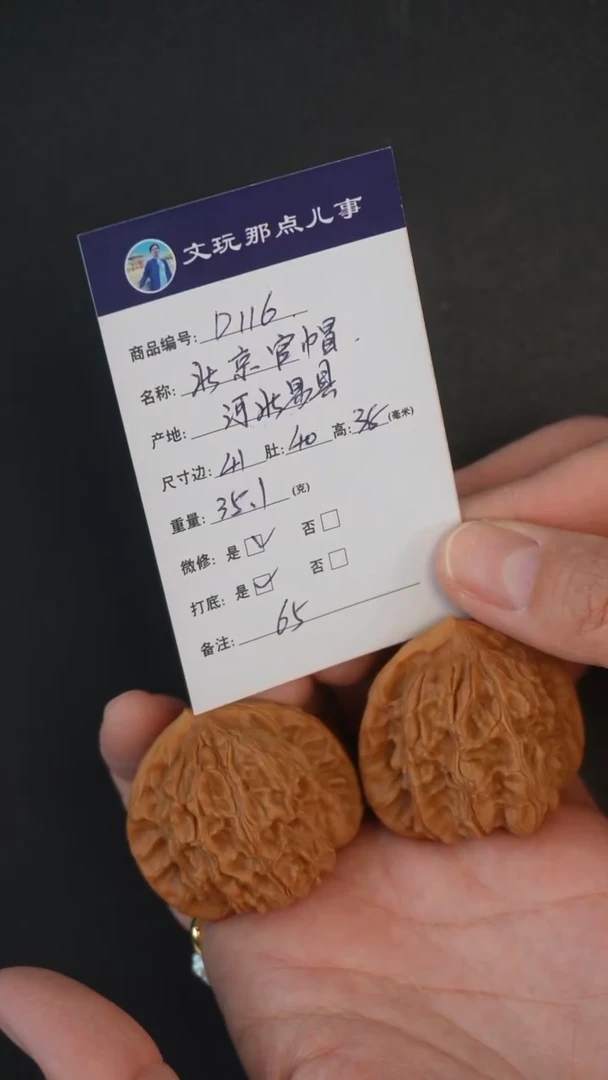 文玩那点儿事
商品编号: D116
名称: 北京官帽
产地: 河北易县
尺寸边: 41 肚: 40 高: 36 (毫米)
重量: 35.1 (克)
微修: 是☑ 否☐
打底: 是☑ 否☐
备注: 65